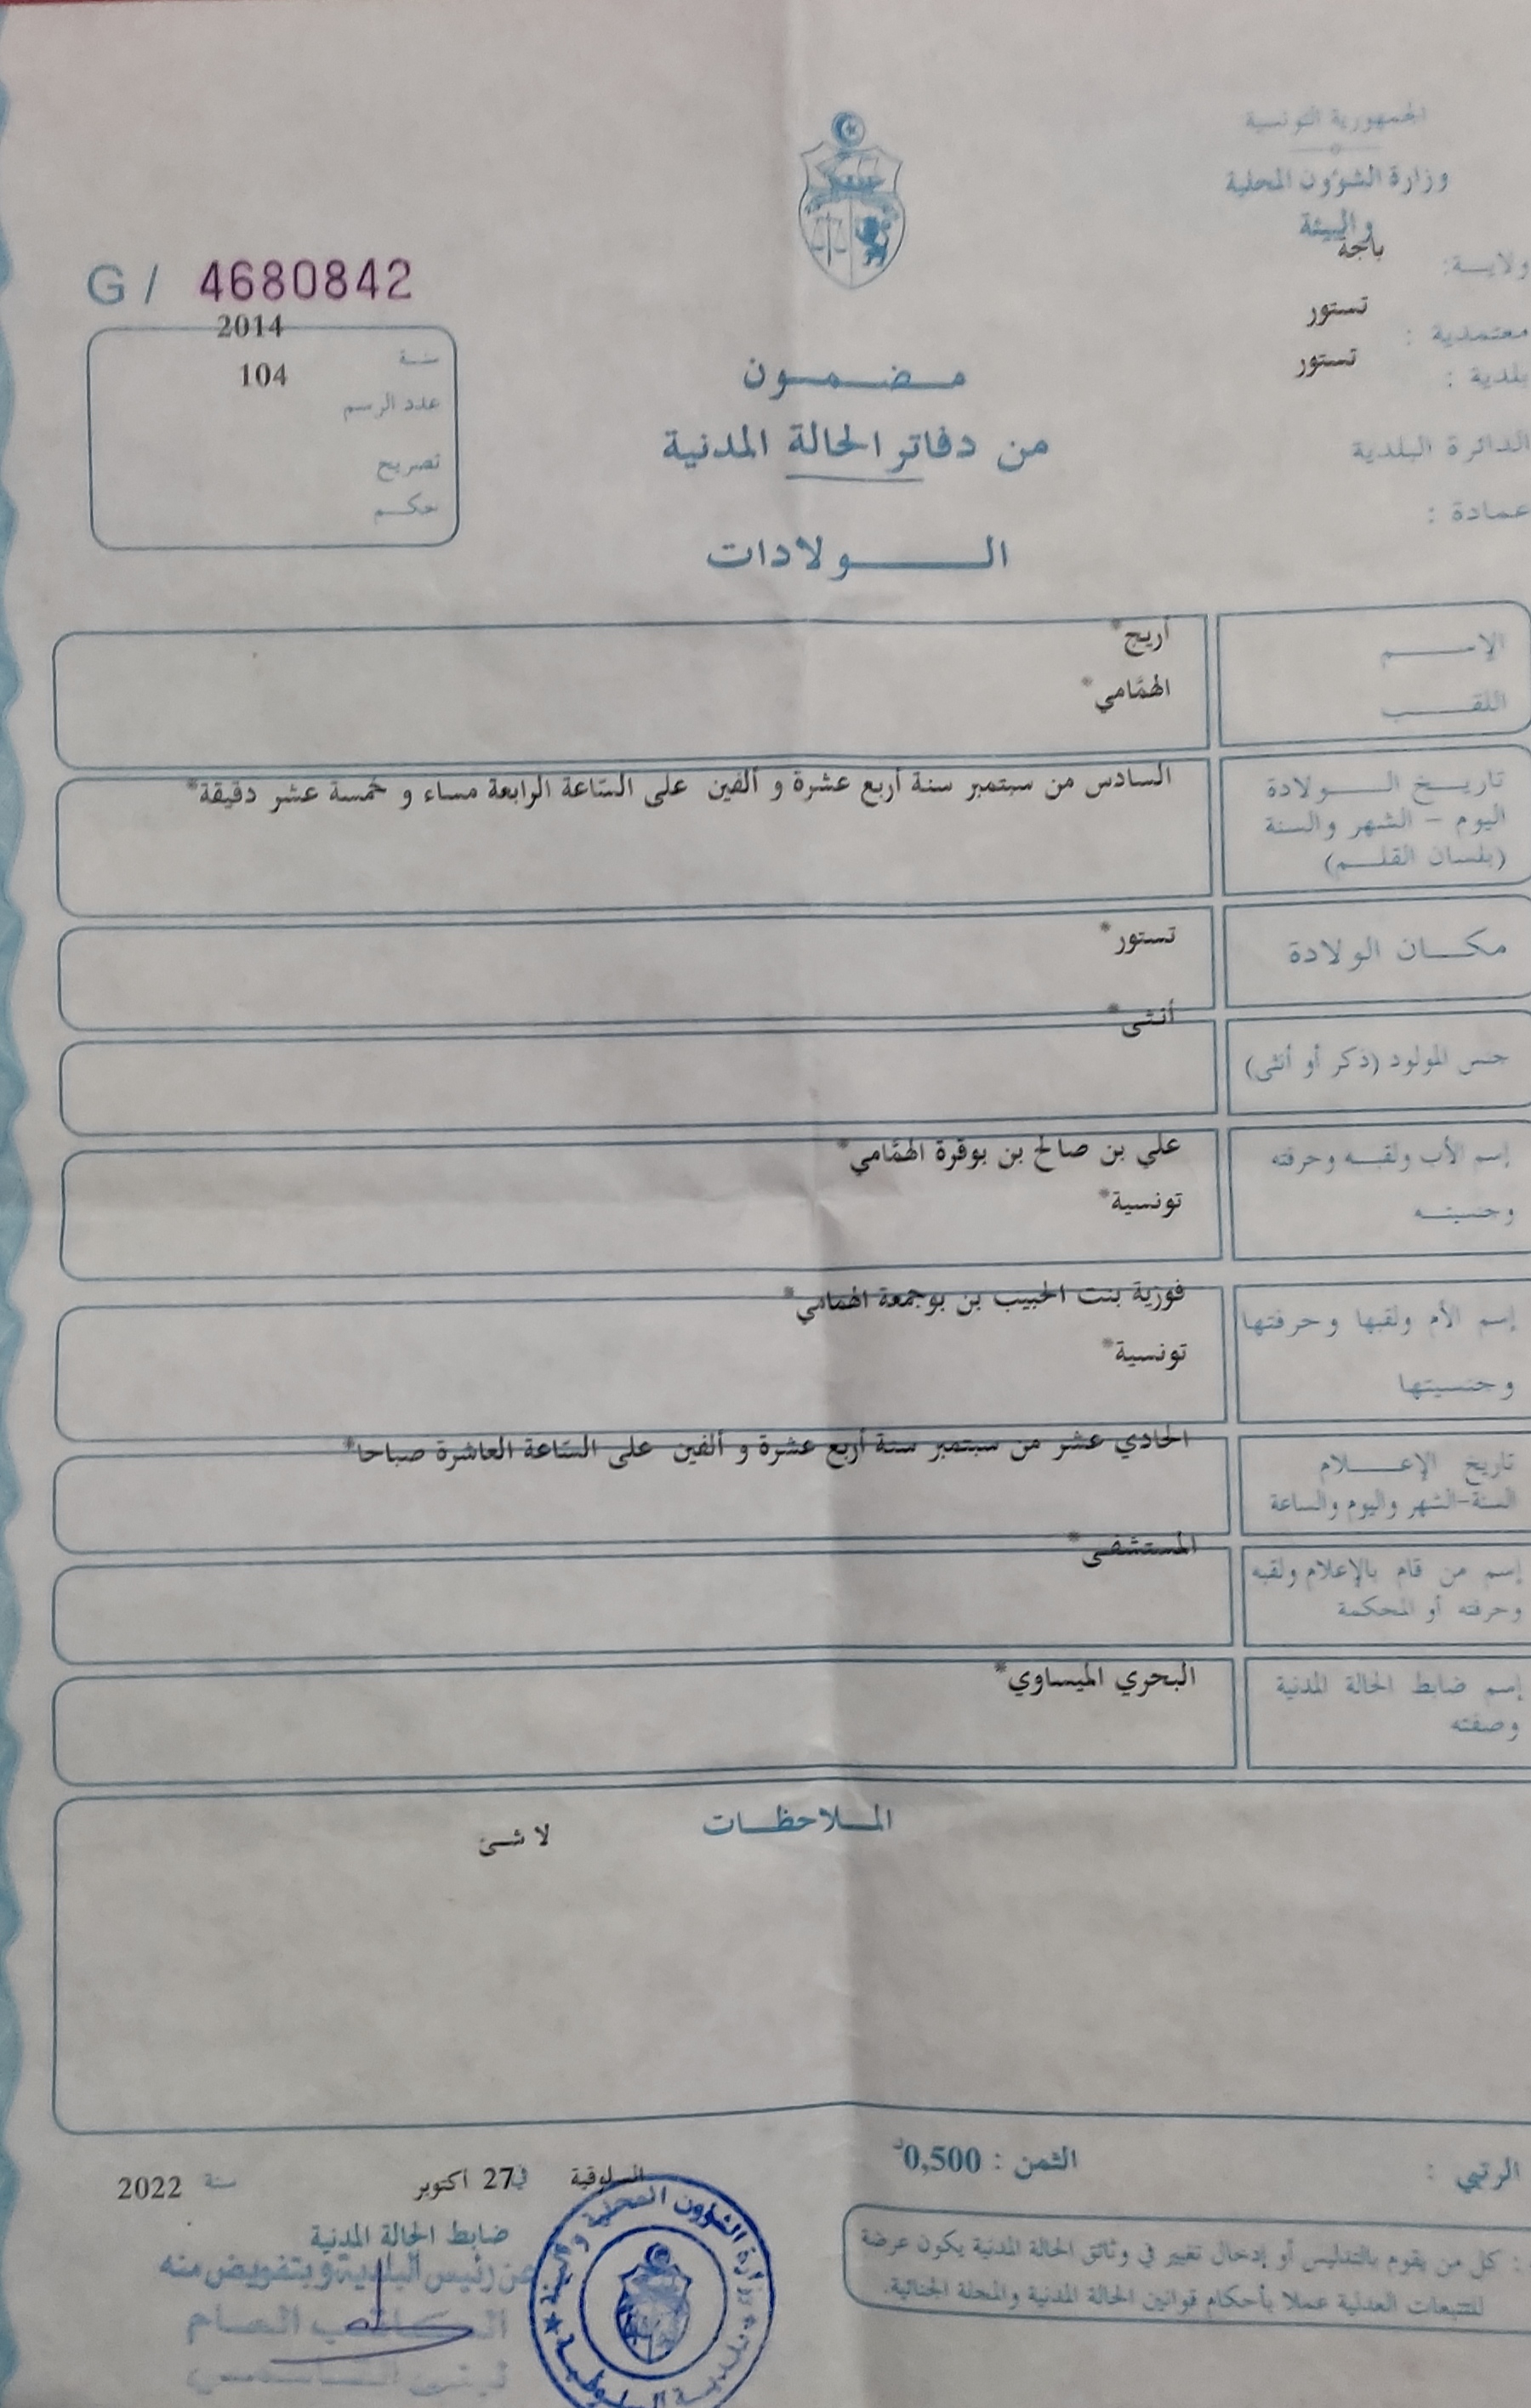 الجمهورية التونسية
وزارة الشؤون المحلية
والبيئة
ولايـة: باجة
معتمدية : تستور
بلدية : تستور
الدائرة البلدية
عمادة :
G / 4680842
سنة 2014
عدد الرسم 104
تصريح
حكم
مضمون
من دفاتر الحالة المدنية
الولادات
الإسم أريج*
اللقب الهمّامي*
تاريخ الولادة السادس من سبتمبر سنة أربع عشرة و ألفين على السّاعة الرابعة مساء و خمسة عشر دقيقة*
اليوم - الشهر والسنة
(بلسان القلم)
مكان الولادة تستور*
جنس المولود (ذكر أو أنثى) أنثى*
إسم الأب ولقبه وحرفته علي بن صالح بن بوقرة الهمّامي*
وجنسيته تونسية*
إسم الأم ولقبها وحرفتها فوزية بنت الحبيب بن بوجمعة الهمامي*
وجنسيتها تونسية*
تاريخ الإعلام الحادي عشر من سبتمبر سنة أربع عشرة و ألفين على السّاعة العاشرة صباحا*
السنة-الشهر واليوم والساعة
إسم من قام بالإعلام ولقبه المستشفى*
وحرفته أو المحكمة
إسم ضابط الحالة المدنية البحري الميساوي*
وصفته
الملاحظات
لا شئ
الرتبي :
الثمن : 0,500د
: كل من يقوم بالتدليس أو إدخال تغيير في وثائق الحالة المدنية يكون عرضة
للتتبعات العدلية عملا بأحكام قوانين الحالة المدنية والمجلة الجنائية.
السلوقية في 27 اكتوبر سنة 2022
ضابط الحالة المدنية
عن رئيس البلدية وبتفويض منه
الكاتب العام
وزارة الشؤون المحلية والبيئة
بلدية السلوقية